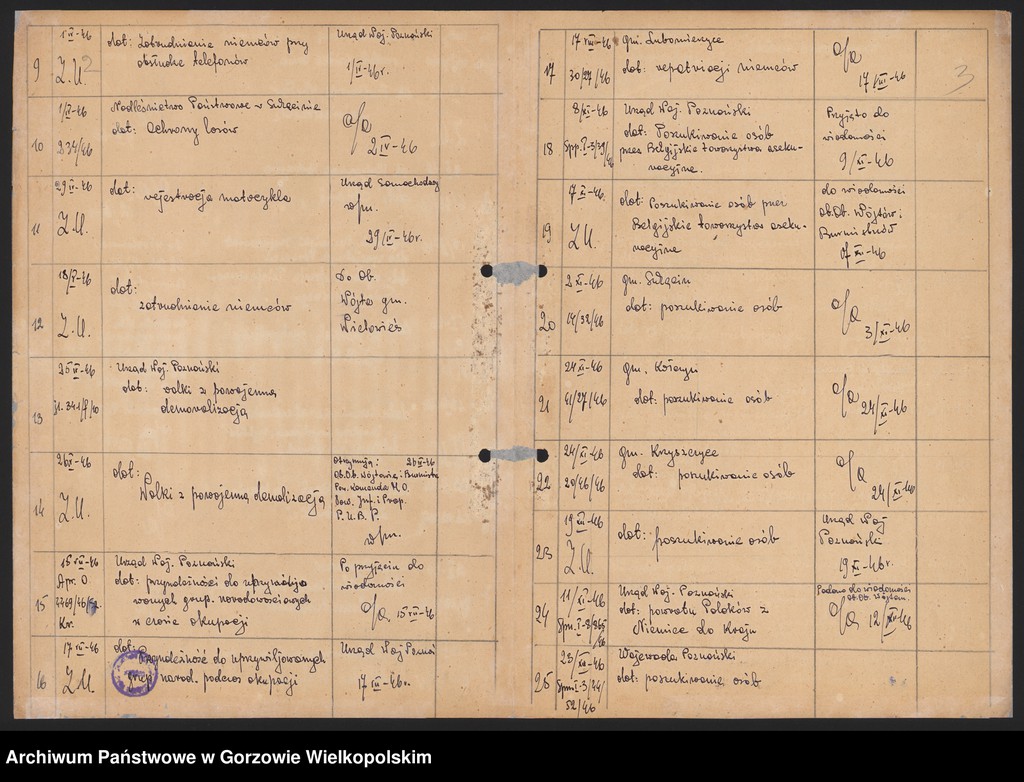 9
1 IV-46
Z.U.
dot: Zatrudnienie niemców przy
obsłudze telefonów
Urząd Woj. Poznański
1/IV-46r.
10
1/IV-46
234/46
Nadleśnictwo Państwowe w Sulęcinie
dot: Ochrony lasów
a/a
2 IV-46
11
29 IV-46
Z.U.
dot:
rejestracja motocykla
Urząd Samochodowy
w/m.
29/IV-46r.
12
18/V-46
Z.U.
dot:
zatrudnienie niemców
Do Ob.
Wójta gm.
Wielowieś
13
25 VI-46
Urząd Woj. Poznański
dot: walki z powojenną
demoralizacją
14
Z.U.
dot:
Walki z powojenną demolizacją
Otrzymują:
Ob.Ob. Wójtowie i Burmistrz
Pow. Komenda M.O.
Pow. Inf. i Prop.
P.U.B.P.
w/m.
15
15 VII-46
Apr. O
2769/46
Kr.
Urząd Woj. Poznański
dot: przynależności do uprzywilejo
wanych grup narodowościowych
w czasie okupacji
Po przyjęciu do
wiadomości
a/a 15 VII-46
16
17 VII-46
Z.U.
dot:
Przynależność do uprzywiljowanych
grup narod. podczas okupacji
Urząd Woj Poznań
17
17 VIII-46
30/27/46
gm. Lubomierzyce
dot: repatriacji niemców
a/a
17/VIII-46
3
18
8/XI-46
Spp. I-3/39/46
Urząd Woj. Poznański
dot: Poszukiwanie osób
przez Belgijskie towarzystwa aseku-
racyjne.
Przyjęto do
wiadomości
9/XI-46
19
Z.U.
dot: Poszukiwanie osób przez
Belgijskie towarzystwa aseku-
racyjne
do wiadomości
Ob.Ob. Wójtów i
Burmistrzów
20
2 XI-46
14/38/46
gm. Sulęcin
dot: poszukiwanie osób
a/a
3/XI-46
21
24 XI-46
41/27/46
gm.
dot: poszukiwanie osób
a/a
24/XI-46
22
24/XI-46
20/46/46
gm. Krzeszyce
dot: poszukiwanie osób
a/a
24/XI-46
23
19 XI-46
Z.U.
dot: poszukiwanie osób
Urząd Woj
Poznański
19 XI-46r.
24
11/XII-46
Urząd Woj. Poznański
dot: powrotu Polaków z
Niemiec do Kraju
Podano do wiadomości
Ob.Ob. Wójtom
a/a 12/XII-46
25
23/XII-46
Spm. I-3/34/
52/46
Wojewoda Poznański
dot: poszukiwanie osób
Archiwum Państwowe w Gorzowie Wielkopolskim